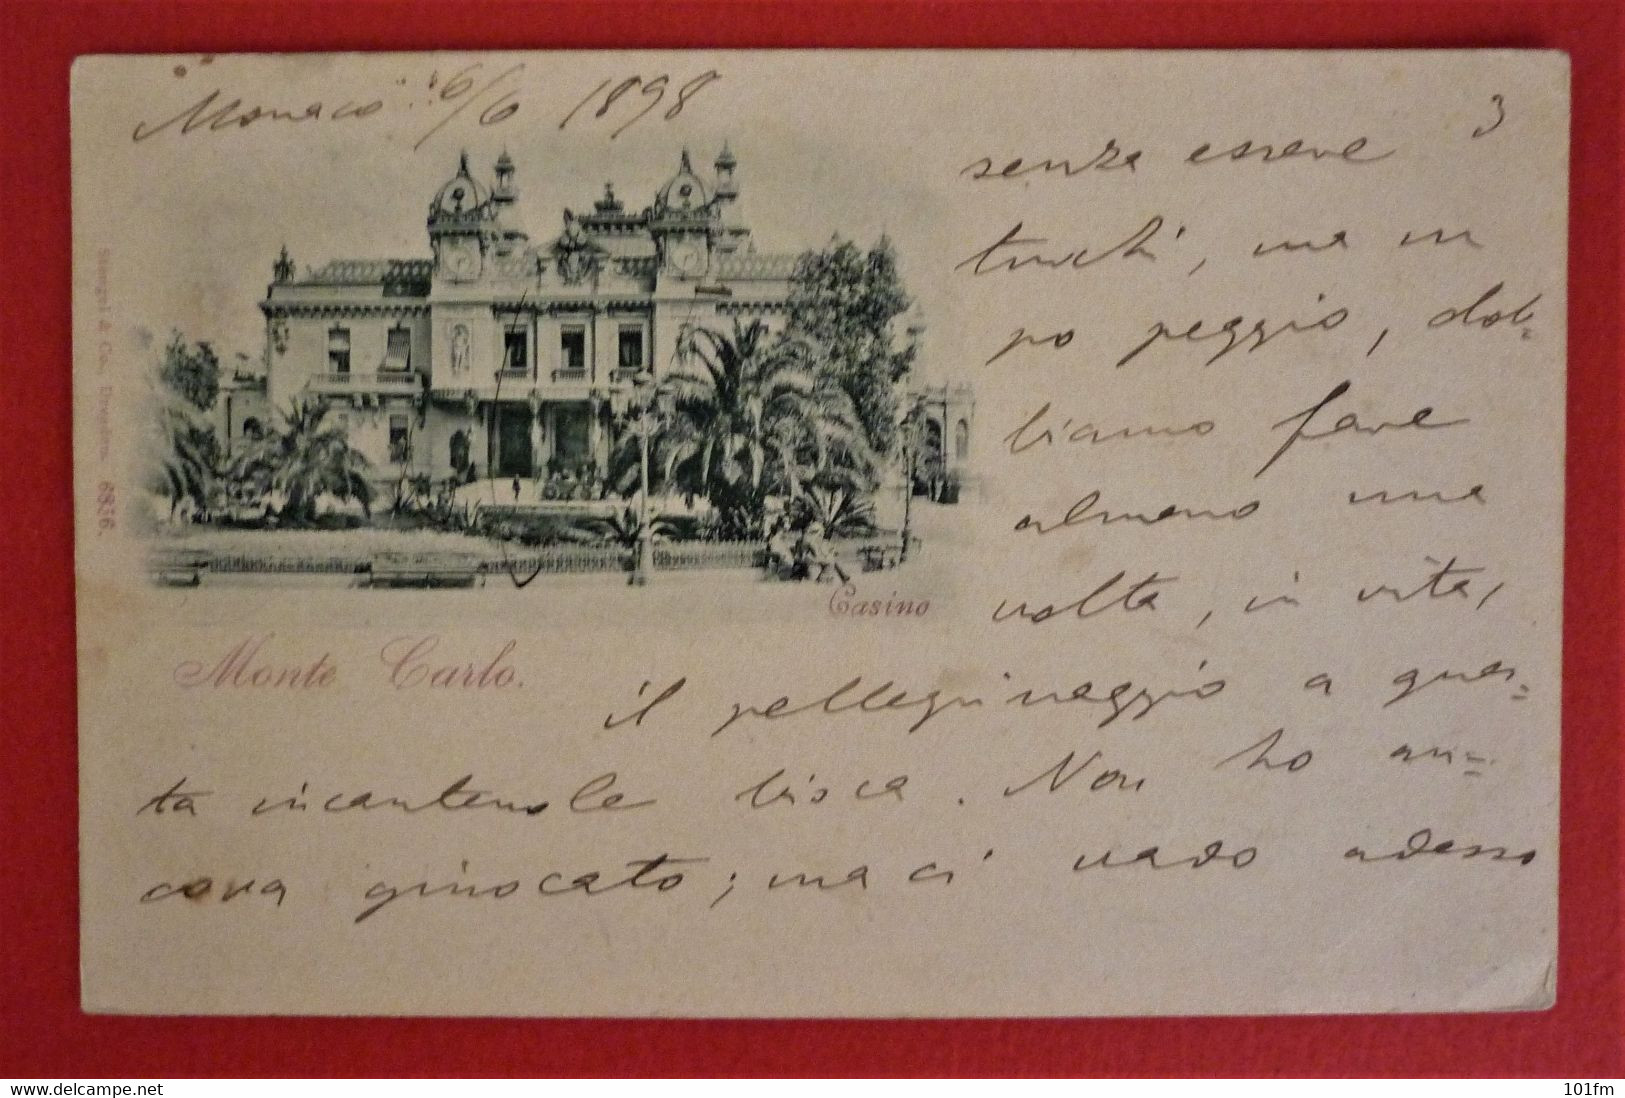 Monaco 6/6 1898
3
senza essere
turchi, ma un
po peggio, dob=
biamo fare
almeno una
volta, in vita,
il pellegrinaggio a ques=
ta incantevole bisca. Non ho an=
cora giuocato; ma ci vado adesso
Casino
Monte Carlo.
Stengel & Co., Dresden 6836.
www.delcampe.net
101fm